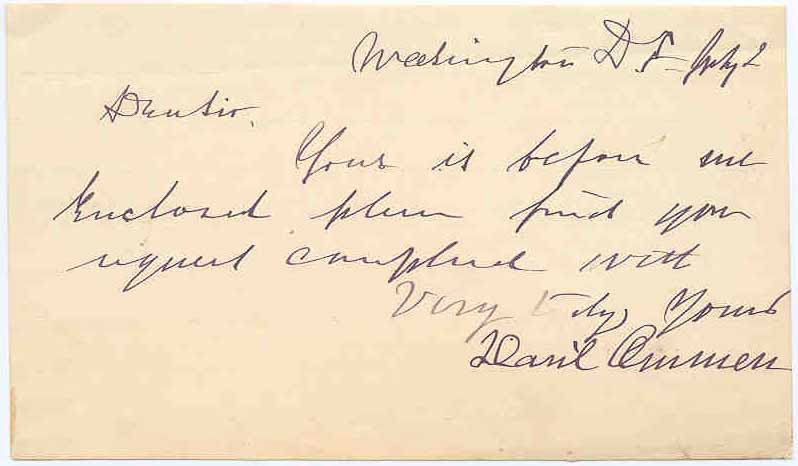 Washington D.C. July 2
Dear Sir.
Yours is before me
Enclosed please find your
request complied with
Very truly Yours
Danl Ammen